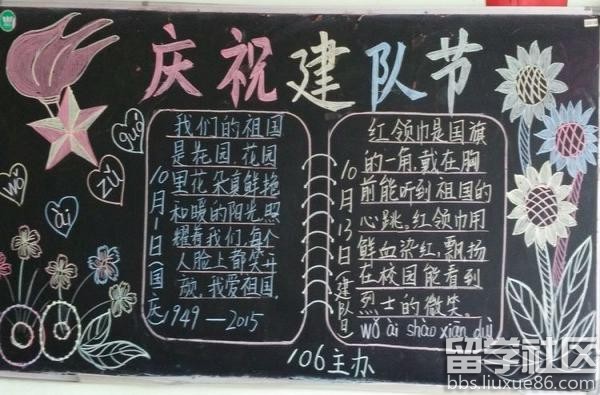 庆祝建队节
wǒ
ài
zǔ
guó
10月1日国庆
我们的祖国
是花园,花园
里花朵真鲜艳
和暖的阳光,照
耀着我们,每个
人脸上都笑开
颜,我爱祖国.
1949—2015
10月13日(建队日
红领巾是国旗
的一角,戴在胸
前能听到祖国的
心跳,红领巾用
鲜血染红,飘扬
在校园能看到
烈士的微笑.
wǒ ài shào xiān duì
106主办
留学社区
bbs.liuxue86.com